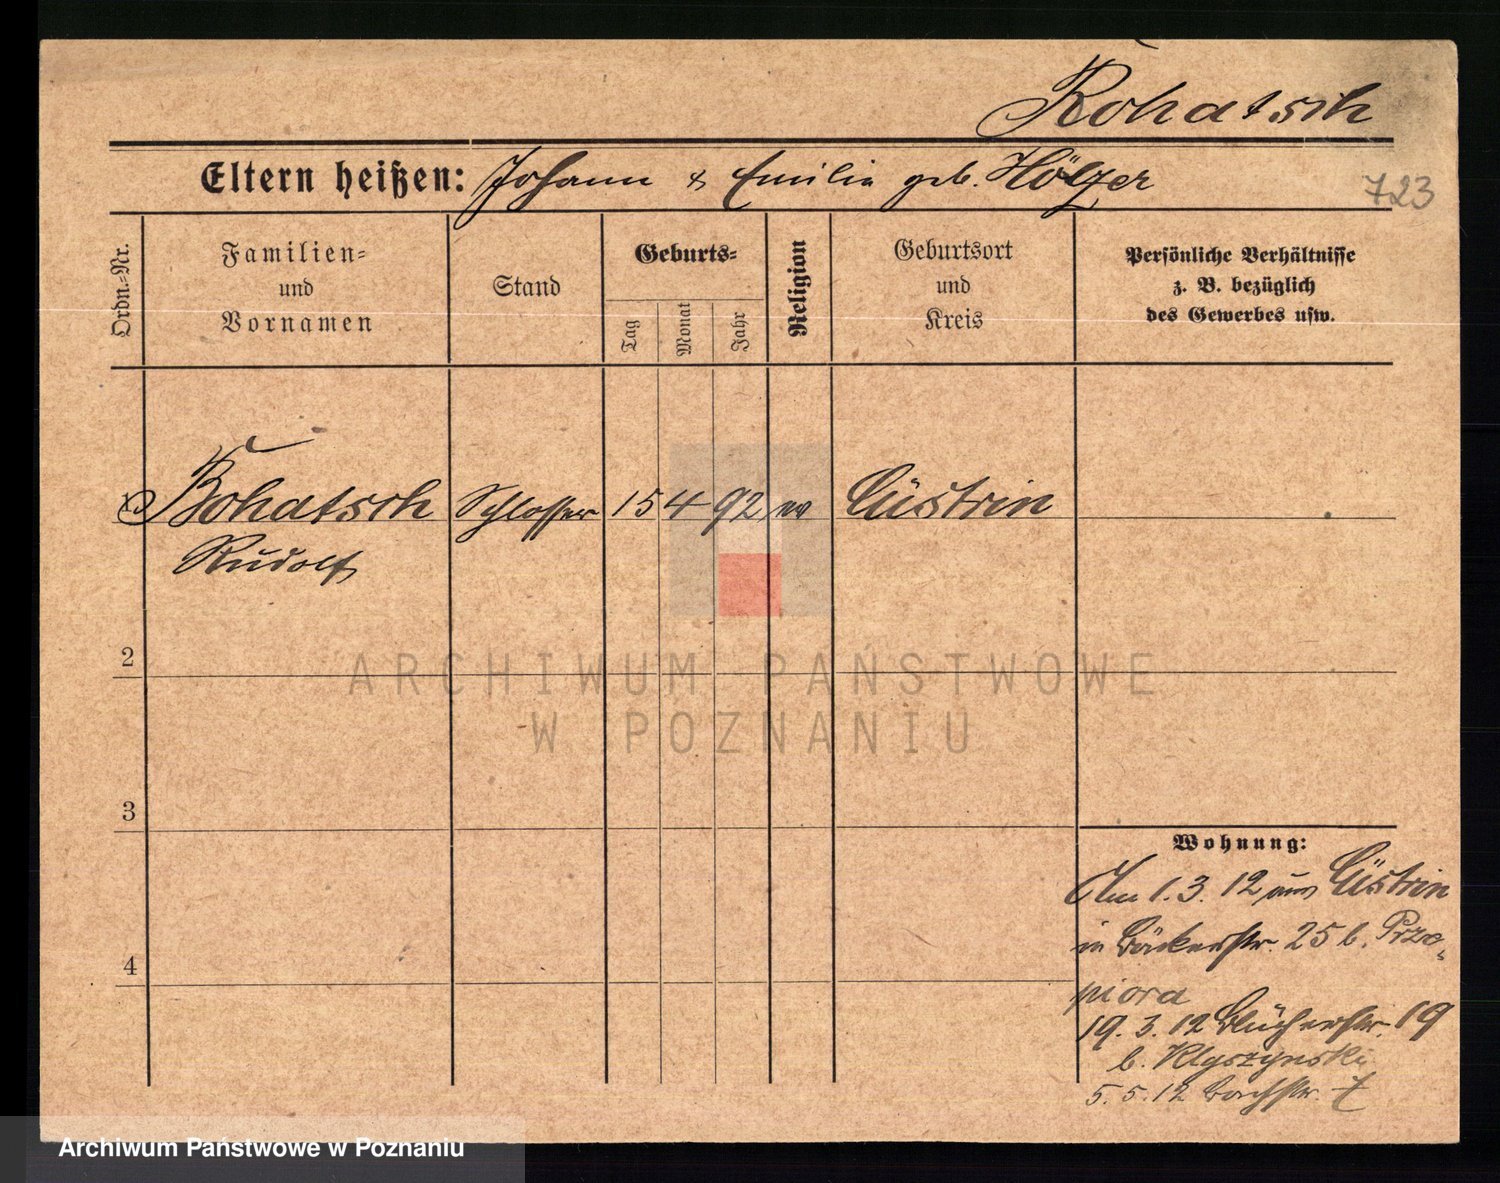 Bohatsch
Eltern heißen: Johann & Emilie geb. Hölzer
723
Ordn.-Nr.
Familien-
und
Vornamen
Stand
Geburts-
Tag
Monat
Jahr
Religion
Geburtsort
und
Kreis
Persönliche Verhältnisse
z. B. bezüglich
des Gewerbes usw.
Bohatsch Schlosser 15 4 92 ev Cüstrin
Rudolf
2
ARCHIWUM PAŃSTWOWE
W POZNANIU
3
Wohnung:
Am 1. 3. 12 aus Cüstrin
in Bäckerstr. 25 b. Prze-
piora
4
19. 3. 12 Blücherstr. 19
b. Klyszynski
5. 5. 12 Bachstr. 7
Archiwum Państwowe w Poznaniu